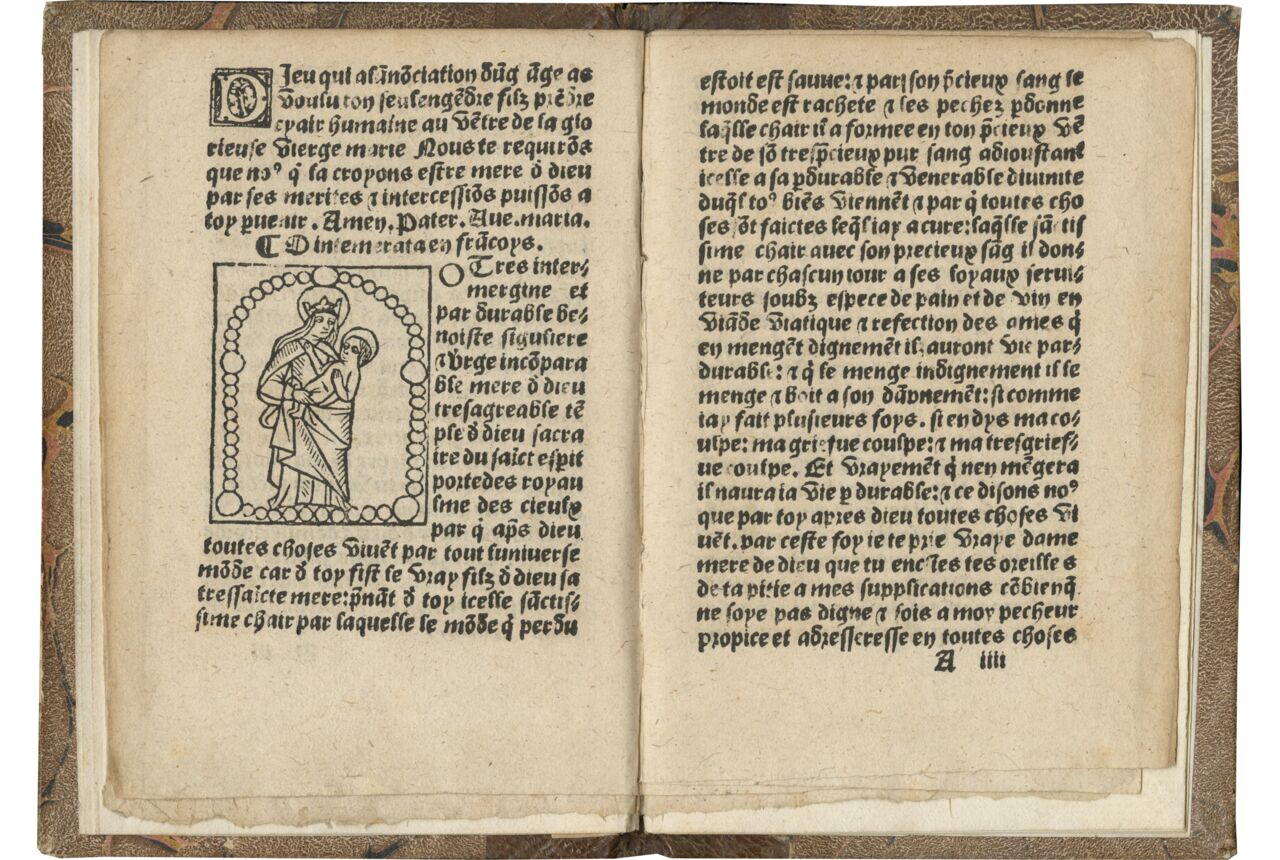 Dieu qui a lãnõciation dũg ãge as
voulu ton seul engẽdre filz prẽdre
cy air humaine au vẽtre de la glo
rieuse vierge marie Nous te requirõs
que no⁹ q̃ la croyons estre mere d̃ dieu
par ses merites ⁊ intercessiõs puissõs a
toy ꝑuenir. Amen. Pater. Aue. maria.
¶ O intemerata en frãcoys.
O Tres inter⸗
mergine et
par durable be⸗
noiste siguliere
⁊ vrge incõpara
ble mere d̃ dieu
tresagreable tẽ
ple d̃ dieu sacra
ire du saict esp̃it
porte des royau
lme des cieulx
par q̃ ap̃s dieu
toutes choses viuẽt par tout luniuerse
mõde car d̃ toy fist le vray filz d̃ dieu sa
tressaicte mere: p̃nãt d̃ toy icelle sãctis⸗
sime chair par laquelle le mõde q̃ perdu
estoit est sauue: ⁊ par son p̃cieux sang le
monde est rachete ⁊ les pechez ꝑdonne
laq̃lle chair il a formee en ton p̃cieux vẽ
tre de sõ tresp̃cieux pur sang adioustant
icelle a sa ꝑdurable ⁊ venerable diuinite
duq̃l to⁹ biẽs viennẽt ⁊ par q̃ toutes cho
ses õt faictes leq̃l iay a cure: laq̃lle sãctis
sime chair auec son precieux sãg il don⸗
ne par chascun iour a ses loyaux serui⸗
teurs soubz espece de pain et de vin en
viãde viatique ⁊ refection des ames q̃
en mengẽt dignemẽt ilz auront vie par⸗
durable: ⁊ q̃ le menge indignement il le
menge ⁊ boit a son dãpnemẽt: si comme
iay fait plusieurs foys. si en dys ma co⸗
ulpe: ma griefue coulpe: ⁊ ma tresgrief⸗
ue coulpe. Et vrayemẽt q̃ nen mẽgera
il naura ia vie ꝑ durable: ⁊ ce disons no⁹
que par toy apres dieu toutes choses vi
uẽt. par ceste foy ie te prie vraye dame
mere de dieu que tu enclĩes tes oreilles
de ta pitie a mes supplications cõbienq̃
ne soye pas digne ⁊ sois a moy pecheur
propice et adresseresse en toutes choses
A iiii